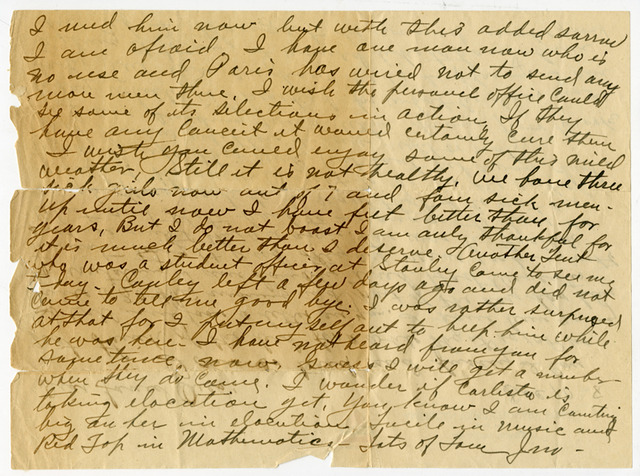 I need him now but with this added sorrow
I am afraid. I have one man now who is
no use and Paris has wired not to send any
more men there. I wish the personnel office could
see some of its selections in action. If they
have any conceit it would certainly cure them
I wish you could enjoy some of this mild
weather. Still it is not healthy. We have three
sick girls now out of 7 and four sick men.
Up until now I have felt better than for
years, But I do not boast I am only thankful for
it is much better than I deserve.
who was a student officer at Stanley came to see me
today. Conley left a few days ago and did not
come to tell me good bye. I was rather surprised
at that for I put myself out to help him while
he was here. I have not heard from you for
sometime, now, guess I will get a number
when they do come. I wonder if Carlista is
taking elocution yet. You know I am counting
big on her in elocution Lucile in music and
Red Top in Mathematics - Lots of love Jno -